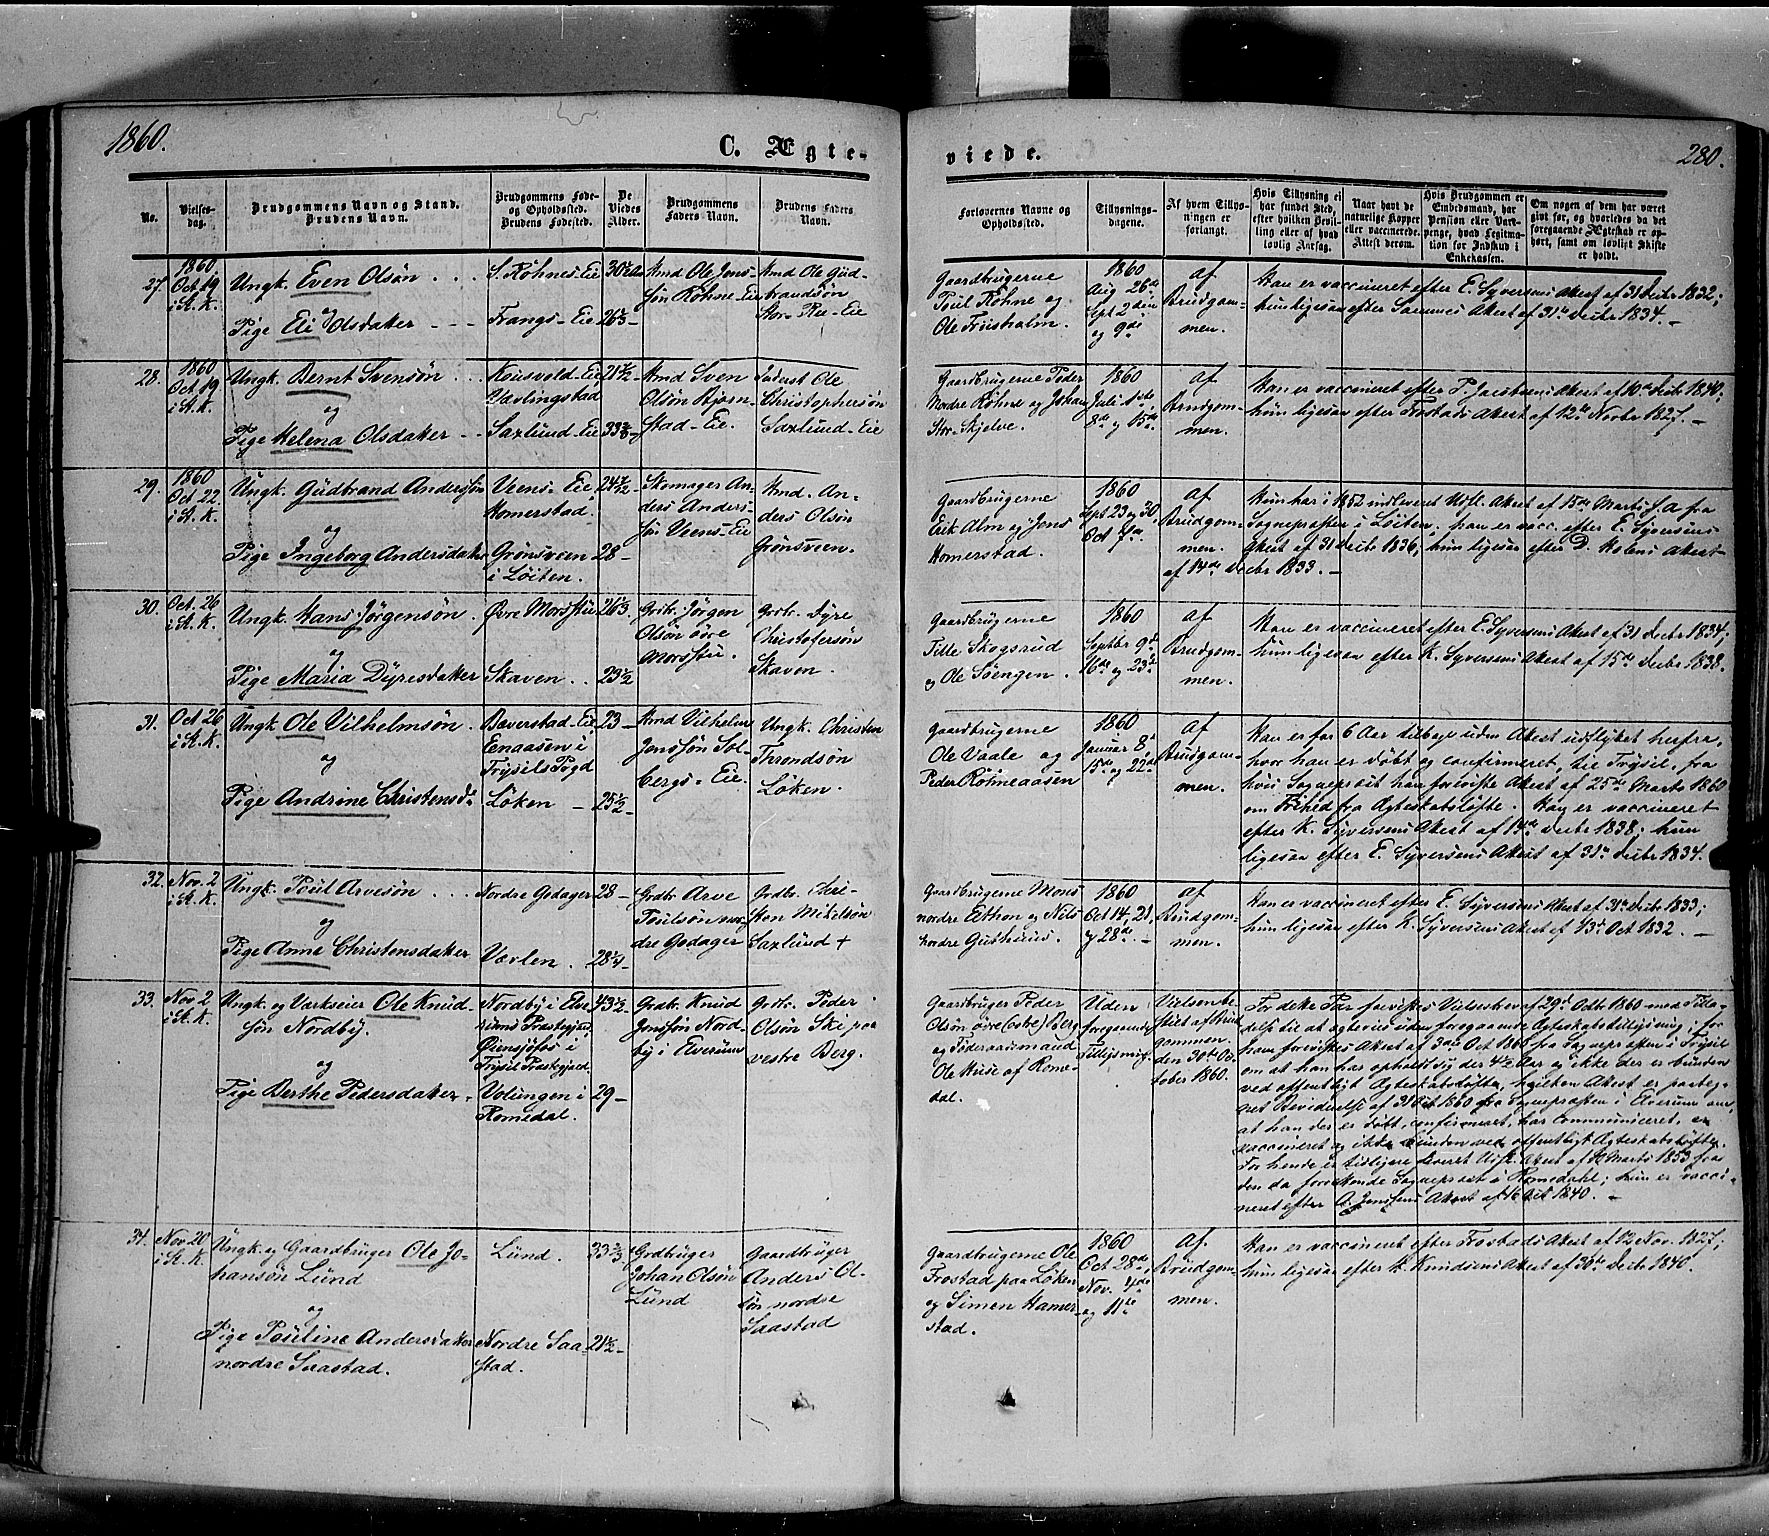 1860.
C. Ægte-
viede.
280.
No.
Vielses-
dag.
Brudgommens Navn og Stand.
Brudens Navn.
Brudgommens Føde-
og Opholdssted.
Brudens Fødested.
De
Viedes
Alder.
Brudgommens
Faders Navn.
Brudens Faders
Navn.
Forlovernes Navne og
Opholdssted.
Tillysnings-
dagene.
Af hvem Tillys-
ningen er
forlangt.
Hvis Tillysning ei
har fundet Sted,
efter hvilken Bevil-
ling eller af hvad
lovlig Aarsag.
Naar havt de
naturlige Kopper
eller vaccinerede.
Attest derom.
Hvis Brudgommen er
Embedsmand, har
Pension eller Var-
penge, hvad Legitma-
tion for Indskud i
Enkekassen.
Om nogen af dem har været
givt før, og hvorledes da det
foregaaende Ægteskab er op-
hørt, samt om lovligt Skifte
er holdt.
27.
1860
Oct 19
i St. K.
Ungk. Even Olsøn
og
Pige Eli Olsdatter
S. Röhnes Eie
Frangs-Eie
Huusmd Ole Jens-
søn Röhne-Eie
Ole Gud-
brandsøn
Gaardbrugerne
Poul Röhne og
Ole Friisholm.
1860
Aug 26de
Sept 2den
og 9de
af
Brudgom-
men.
Han er vaccineret efter E. Syversens Attest af 31 Decbr 1832;
hun ligesaa efter Attest af 31te Decbr 1834.
28.
1860
Oct 19
i St. K.
Ungk. Bernt Svensøn
og
Pige Helena Olsdatter
Kousvold-Eie,
Vavlingstad
Saxlund-Eie
21½
Sven
Olsøn Hjem-
stad-Eie.
Ole
Christophersøn
Saxlund-Eie
Gaardbrugerne Peder
Nordre Röhne og Johan
Stor-Skjelve.
1860
Juli 1ste,
8de og 15de
af
Brudgom-
men.
Han er vaccineret efter P. Jacobsens Attest af 10de Decbr 1840;
hun ligesaa efter Frostads Attest af 12te Novbr 1827.
29.
1860
Oct 22
i St. K.
Ungk. Gudbrand Andersøn
og
Pige Ingeborg Andersdatter
Veens-Eie
Homerstad.
Grönsveen
i Löiten.
24½
28
Skomager An-
ders Anders-
søn Veens-Eie
An-
ders Olsøn
Grönsveen.
Gaardbrugerne
Erik Alm og Jens
Homerstad.
1860
Sept 23 og 30,
Oct 7de
af
Brudgom-
men.
Hun har i 1852 indleveret Udfl. Attest af 15de Marts s. A. fra
Sognepræsten i Löiten; han er vacc. efter E. Syversens
Attest af 31 Decbr 1836; hun ligesaa efter D. Holens Attest
af 14de Decbr 1833.
30.
Oct. 26
i St. K.
Ungk. Hans Jörgensøn
og
Pige Maria Dyresdatter
Øvre Morstu
Skaven
23½
Grdbr. Jörgen
Olsøn övre
Morstu.
Grdbr. Dyre
Christofersøn
Skaven.
Gaardbrugerne
Pelle Skogsrud
og Ole Söengen.
1860
Septbr 9de
16de og 23de
af
Brudgom-
men.
Han er vaccineret efter E. Syversens Attest af 31 Decbr 1834;
hun ligesaa efter K. Syversens Attest af 15de Decbr 1838.
31.
Oct 26
i St. K.
Ungk. Ole Vilhelmsøn
og
Pige Andrine Christensd.
Bæverstad-Eie,
Enaasen i
Trysils Pgd
Löken
23
25½
Vilhelm
Jenssøn Sol-
bergs-Eie.
Ungk. Christen
Throndsøn
Löken.
Gaardbrugerne
Ole Vaale og
Peder Röhneaasen
1860
Januar 8de
15de og 22de
af
Brudgom-
men.
Han er for 6 Aar tilbage uden Attest udflyttet herfra,
hvor han er döbt og confirmeret, til Trysil, fra
hvis Sogneprest han foreviste Attest af 25de Marts 1860
om Frihed fra Ægteskabslöfte. Han er vaccineret
efter K. Syversens Attest af 14de Decbr 1838; hun
ligesaa efter E. Syversens Attest af 31te Decbr 1834.
32.
Nov. 2
i St. K.
Ungk. Poul Arvesøn
og
Pige Anne Christensdatter
Nordre Gdager
Værlen
28
28¼
Grdbr. Arve
Poulsøn nor-
dre Gdager
Grdbr. Chri-
sten Mikelsøn
Saxlund +
Gaardbrugerne Mons
nordre Ilethon og Nils
nordre Gushuus.
1860
Oct 14, 21,
og 28de
af
Brudgom-
men.
Han er vaccineret efter E. Syversens Attest af 31te Decbr 1833;
hun ligesaa efter K. Syversens Attest af 13de Oct 1832.
33.
Nov 2
i St. K.
Ungk. og Værkseier Ole Knud-
søn Nordby.
og
Pige Berthe Pedersdatter
Nordby i Elve-
rums Præstegjæld
Öiensjöfos i
Trysil Præstegjæld.
Volungen i
Romedal.
43½
29
Grdbr. Knud
Jonssøn Nord-
by i Elverum
Grdbr. Peder
Olsøn Ski paa
vestre Berg.
Gaardbruger Peder
Olsøn övre (östre) Berg
og Föderaadsmand
Ole Huse af Rome-
dal.
Uden
foregaaende
Tillysning.
Vielsenbe-
stilt af Brud-
gommen
den 30te Oc-
tober 1860.
For dette Par forevistes Vielsesbrev af 29de Octbr 1860 med Tilla-
delse til at ægtevies uden foregaaende Ægteskabstillysning; for
ham forevistes Attest af 3die Oct 1860 fra Sognepræsten i Trysil
om at han har opholdt sig der 4½ Aar og ikke der er bunden
ved offentligt Ægteskabslöfte, hvilken Attest er paateg-
net Bevidnelse af 31 Oct 1860 fra Sognepræsten i Elverum om,
at han der er döbt, confirmeret, har communiceret, er
vaccineret og ikke bunden ved offentligt Ægteskabslöfte.
For hende er tidligere leveret Udfl. Attest af Marts 1853 fra
den da forrettende Sogneprest i Romedahl; hun er vacci-
neret efter A. Jenssens Attest af 16 Oct 1840.
34.
Nov 20
i St. K.
Ungk. og Gaardbruger Ole Jo-
hansøn Lund
og
Pige Pouline Andersdatter
nordre Saastad.
Lund.
Nordre Saa-
stad.
33⅔
21½
Grdbruger
Johan Olsøn
Lund
Gaardbruger
Anders Ol-
søn nordre
Saastad
Gaardbrugerne Ole
Frostad paa Löken
og Simen Hamer-
stad.
1860
Oct 28de,
Nov. 4de
og 11te
af
Brudgom-
men.
Han er vaccineret efter Frostads Attest af 12 Nov. 1827;
hun ligesaa efter K. Knudsens Attest af 30te Decbr 1840.